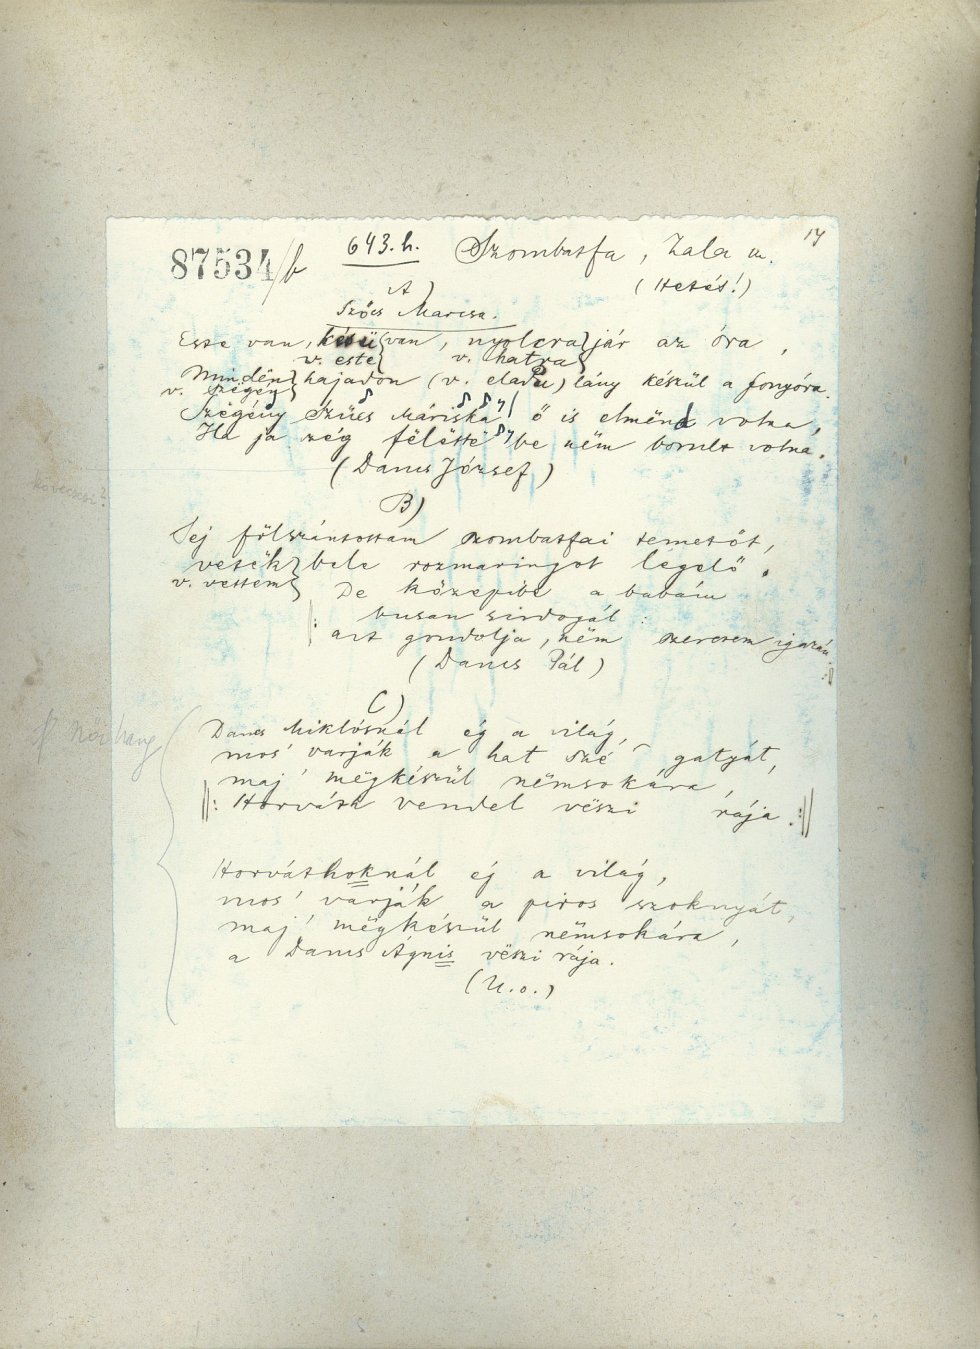 17
87534/b 643.h. Szombatfa, Zala m.
(Hetés!)
A)
Szőcs Marcsa.
Este van, késő van, nyolcra jár az óra,
v. este v. hatra
Mindën hajadon (v. eladu) lány készül a fonyóra.
v. Szëgény
Szëgény Szücs Máriska ő is elmënd volna,
Ha ja zég fëlëttë be nëm borult volna.
(Dancs József)
B)
Sej fölszántottam szombatfai temetőt,
vetëk bele rozmaringot legelő.
v. vettem
De közepibe a babám
busan sirdogál
: azt gondolja, nëm szeretem igazán :
(Dancs Pál)
C)
Női hang
Dancs Miklósnál ég a világ,
mos' varják a hat szé gatyát,
maj' mëgkészül nëmsokára,
‖: Horváth Vendel vëszi rája. :‖
Horváthoknál ég a világ,
mos' varják a piros szoknyát,
maj' mëgkészül nëmsokára,
a Dancs Ágnis vëszi rája.
(U.o.)